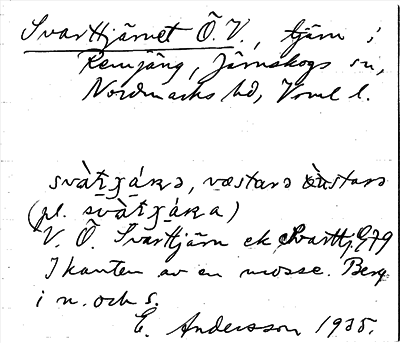 Svarttjärnet Ö. V., tjärn i
Remjäng, Järnskogs sn,
Nordmarks hd, Vrml l.
svàt̠ʒ̠ákɴə, væstarə östarə
(pl. svàt̠ʒ̠áʀɴa)
V. Ö. Svarttjärn ek Svarttj. G79
I kanten av en mosse. Berg
i n. och s.
E. Andersson 1935.